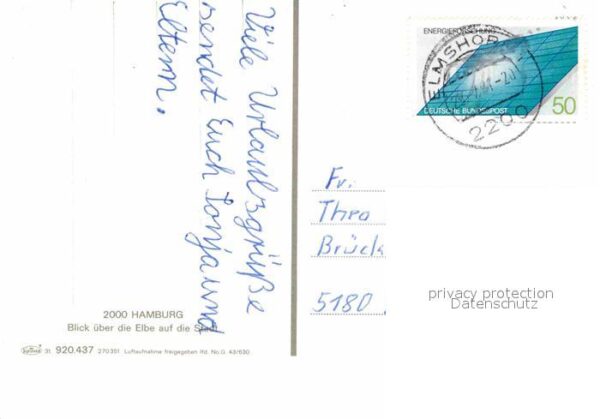 Viele Urlaubsgrüße
sendet Euch Sonja und
Eltern.
ENERGIEFORSCHUNG
DEUTSCHE BUNDESPOST
50
ELMSHOR
2200
Fr.
Theo
Brück
5180
privacy protection
Datenschutz
2000 HAMBURG
Blick über die Elbe auf die
31 920.437 270351 Luftaufnahme freigegeben lfd. No. G. 43/630